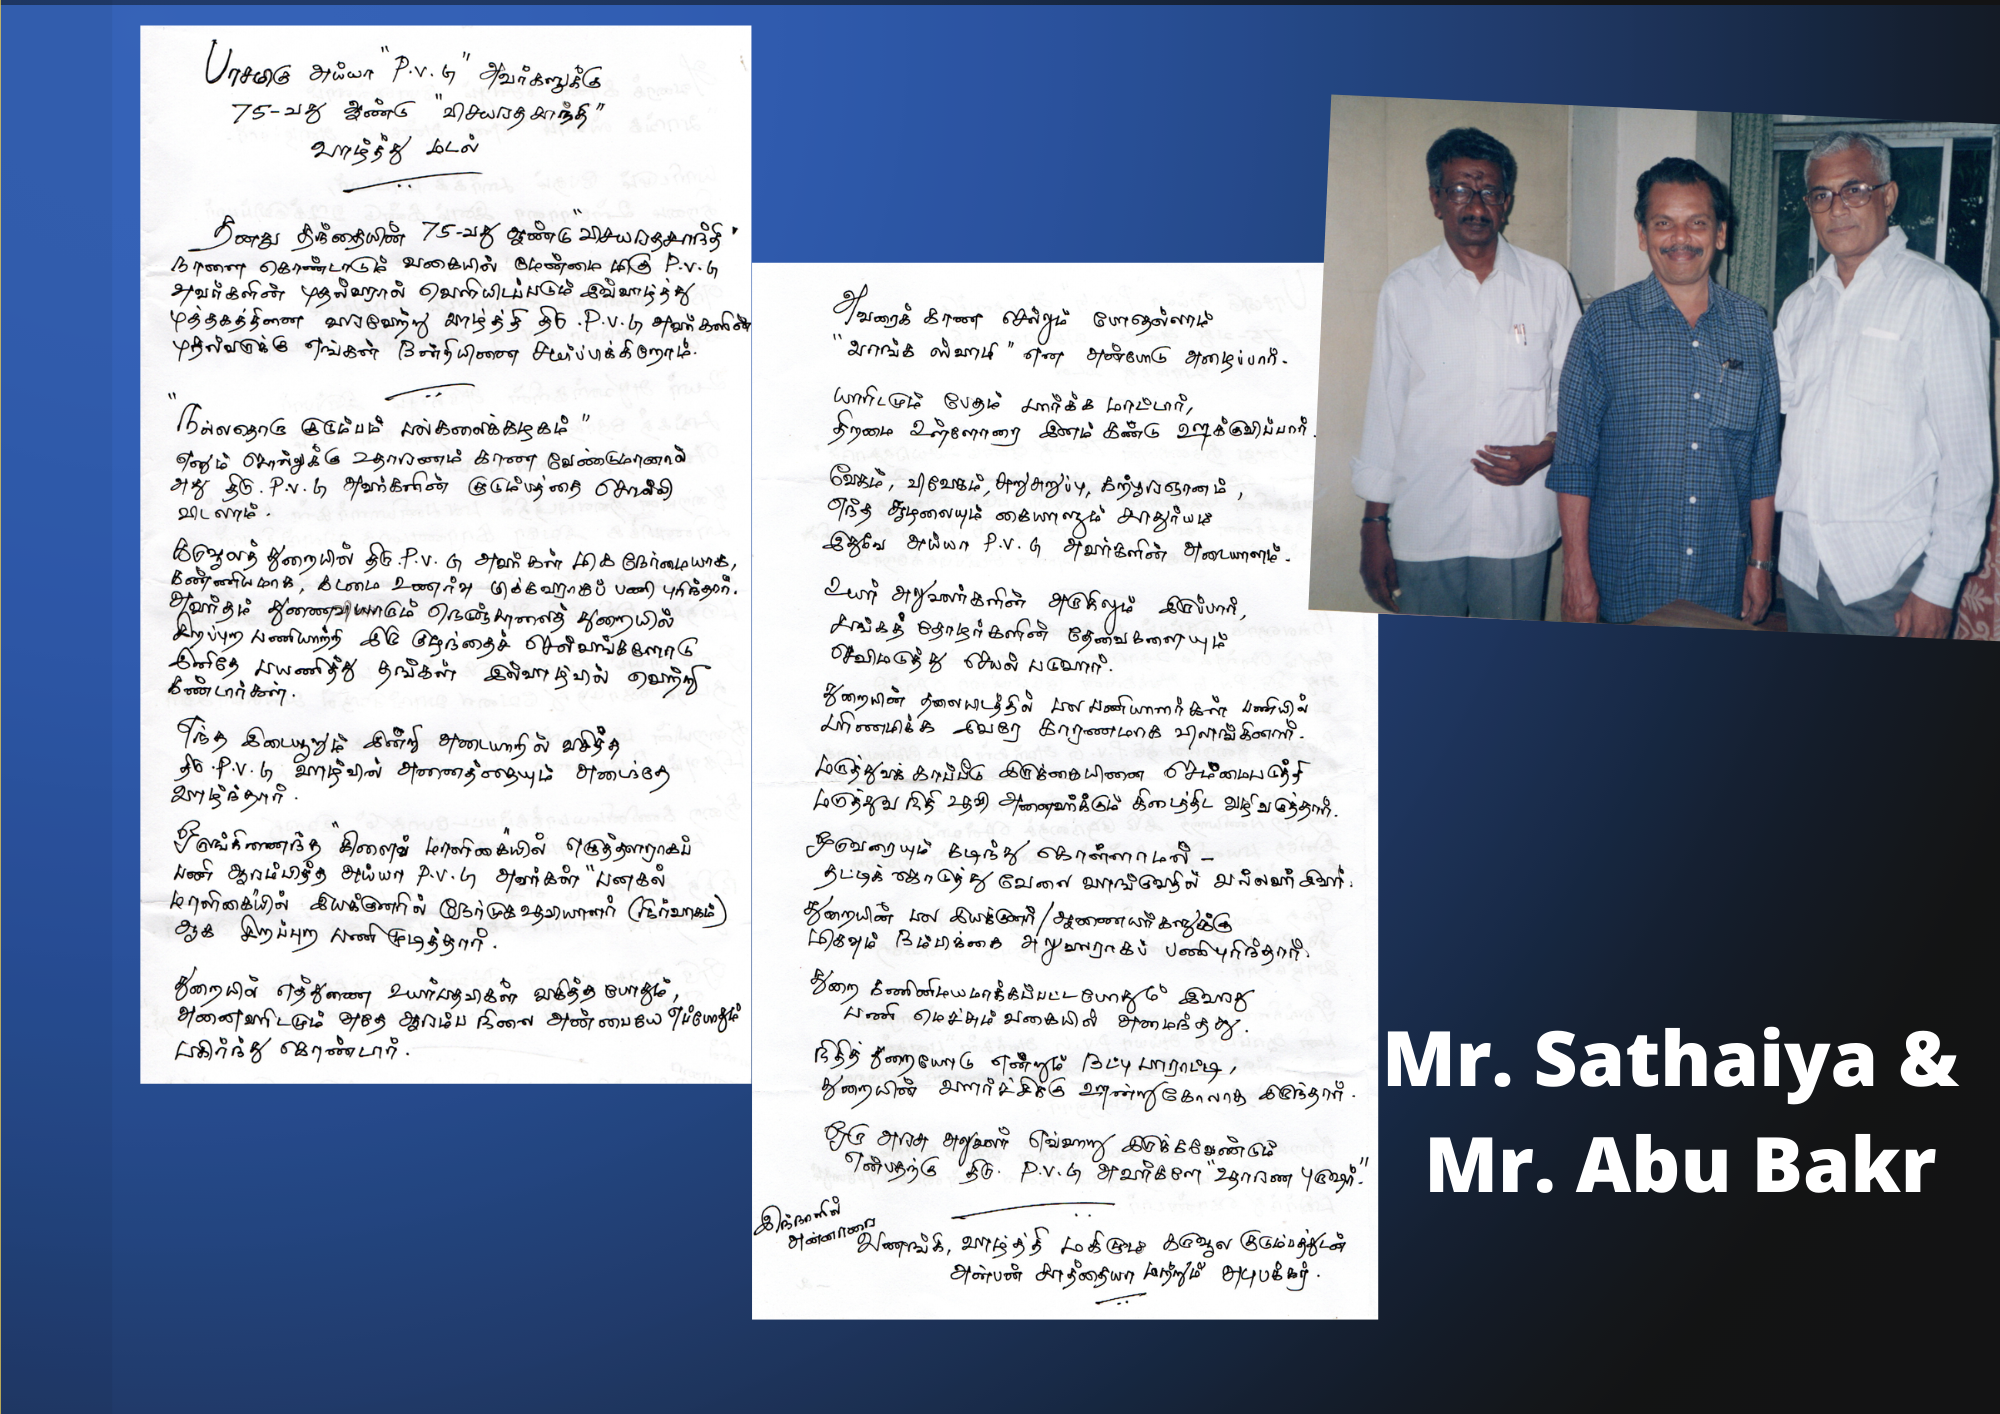 பாசமிகு அய்யா "P.V.G" அவர்களுக்கு
75-வது ஆண்டு "விசயரதசாந்தி"
வாழ்த்து மடல்
தனது தந்தையின் 75-வது ஆண்டு "விசயரதசாந்தி"
நாளை கொண்டாடும் வகையில் மேன்மை மிகு P.V.G
அவர்களின் புதல்வரால் வெளியிடப்படும் இவ்வாழ்த்து
புத்தகத்தினை வரவேற்று வாழ்த்தி திரு.P.V.G அவர்களின்
புதல்வருக்கு எங்கள் நன்றியினை சமர்ப்பிக்கிறோம்.
"நல்லதொரு குடும்பம் பல்கலைக்கழகம்"
எனும் சொல்லுக்கு உதாரணம் காண வேண்டுமானால்
அது திரு.P.V.G அவர்களின் குடும்பத்தை சொல்லி
விடலாம்.
கருவூலத் துறையில் திரு.P.V.G அவர்கள் மிக நேர்மையாக,
கண்ணியமாக, கடமை உணர்வு மிக்கவராகப் பணி புரிந்தார்.
அவர்தம் துணைவியாரும் நெடுஞ்சாலைத் துறையில்
சிறப்புற பணியாற்றி இரு குழந்தைச் செல்வங்களோடு
இனிதே பயணித்து தங்கள் இல்வாழ்வில் வெற்றி
கண்டார்கள்.
எந்த இடையூறும் இன்றி அடையாறில் வசித்த
திரு.P.V.G வாழ்வின் அனைத்தையும் அடைந்தே
வாழ்ந்தார்.
ஒருங்கிணைந்த "கிளைவ் மாளிகை"யில் எழுத்தராகப்
பணி ஆரம்பித்த அய்யா P.V.G அவர்கள் "பனகல்
மாளிகை"யில் இயக்குனரின் நேர்முக உதவியாளர் (நிர்வாகம்)
ஆக சிறப்புற பணி முடித்தார்.
துறையில் எத்துணை உயர்பதவிகள் வகித்த போதும்,
அனைவரிடமும் அதே ஆரம்ப நிலை அன்பையே எப்போதும்
பகிர்ந்து கொண்டார்.
அவரைக் காண செல்லும் போதெல்லாம்
"வாங்க ஸ்வாமி" என அன்போடு அழைப்பார்.
யாரிடமும் பேதம் பார்க்க மாட்டார்,
திறமை உள்ளோரை இனம் கண்டு ஊக்குவிப்பார்.
வேகம், விவேகம், சுறுசுறுப்பு, கற்பூரஞானம்,
எந்த சூழலையும் கையாளும் சாதுர்யம்
இதுவே அய்யா P.V.G அவர்களின் அடையாளம்.
உயர் அலுவலர்களின் அருகிலும் இருப்பார்,
சங்கத் தோழர்களின் தேவைகளையும்
செவிமடுத்து செயல் படுவார்.
துறையின் தலையிடத்தில் பல பணியாளர்கள் பணியில்
பரிணமிக்க இவரே காரணமாக விளங்கினார்.
மருத்துவக் காப்பீடு இருக்கையினை செம்மைபடுத்தி
மருத்துவ நிதி உதவி அனைவர்க்கும் கிடைத்திட வழிவகுத்தார்.
ஒருவரையும் கடிந்து கொள்ளாமல் -
தட்டிக் கொடுத்து வேலை வாங்குவதில் வல்லவர் இவர்.
துறையின் பல இயக்குனர்/ஆணையர்களுக்கு
மிகவும் நம்பிக்கை அலுவலராகப் பணிபுரிந்தார்.
துறை கணினிமயமாக்கப்பட்ட போதும் இவரது
பணி மெச்சும் வகையில் அமைந்தது.
நிதித் துறையோடு என்றும் நட்பு பாராட்டி,
துறையின் வளர்ச்சிக்கு ஊன்றுகோலாக இருந்தார்.
ஒரு அரசு அலுவலர் எவ்வாறு இருக்கவேண்டும்
என்பதற்கு திரு. P.V.G அவர்களே "உதாரண புருஷர்."
இந்நாளில்
அன்னாரை வணங்கி, வாழ்த்தி மகிழும் கருவூல குடும்பத்துடன்
அன்பன் சாத்தையா மற்றும் அபுபக்கர்.
Mr. Sathaiya &
Mr. Abu Bakr